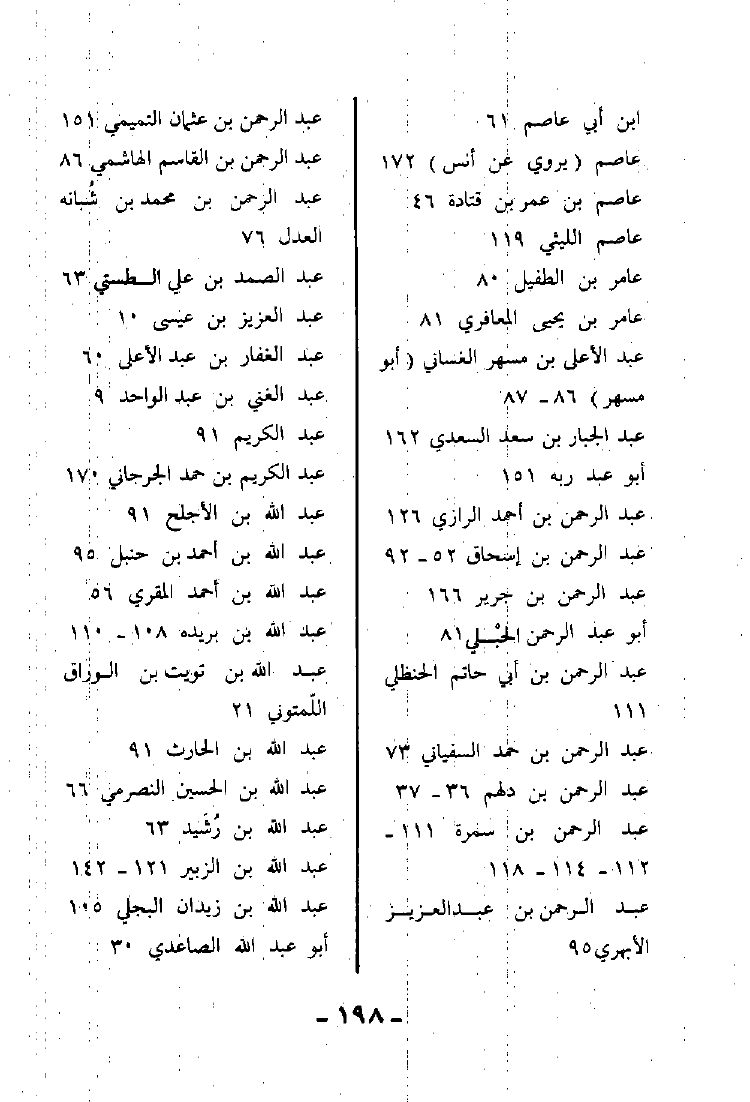 ابن أبي عاصم ٦١
عاصم ( يروي عن أنس ) ١٧٢
عاصم بن عمر بن قتادة ٤٦
عاصم الليثي ١١٩
عامر بن الطفيل ٨٠
عامر بن يحيى المعافري ٨١
عبد الأعلى بن مسهر الغساني ( أبو
مسهر ) ٨٦ - ٨٧
عبد الجبار بن سعد السعدي ١٦٢
أبو عبد ربه ١٥١
عبد الرحمن بن أحمد الرازي ١٢٦
عبد الرحمن بن إسحاق ٥٢ - ٩٢
عبد الرحمن بن جرير ١٦٦
أبو عبد الرحمن الحُبْلي ٨١
عبد الرحمن بن أبي حاتم الحنظلي
١١١
عبد الرحمن بن حمد السفياني ٧٣
عبد الرحمن بن دلهم ٣٦ - ٣٧
عبد الرحمن بن سمرة ١١١ -
١١٢ - ١١٤ - ١١٨
عبد الرحمن بن عبدالعزيز
الأبهري ٩٥
عبد الرحمن بن عثمان التميمي ١٥١
عبد الرحمن بن القاسم الهاشمي ٨٦
عبد الرحمن بن محمد بن شُبانه
العدل ٧٦
عبد الصمد بن علي الطستي ٦٣
عبد العزيز بن عيسى ١٠
عبد الغفار بن عبد الأعلى ٦٠
عبد الغني بن عبد الواحد ٩
عبد الكريم ٩١
عبد الكريم بن حمد الجرجاني ١٧٠
عبد الله بن الأجلح ٩١
عبد الله بن أحمد بن حنبل ٩٥
عبد الله بن أحمد المقري ٥٦
عبد الله بن بريده ١٠٨ - ١١٠
عبد الله بن تويت بن الوزاق
اللّمتوني ٢١
عبد الله بن الحارث ٩١
عبد الله بن الحسين النصرمي ٦٦
عبد الله بن رُشَيد ٦٣
عبد الله بن الزبير ١٢١ - ١٤٢
عبد الله بن زيدان البجلي ١٠٥
أبو عبد الله الصاعدي ٣٠
- ١٩٨ -